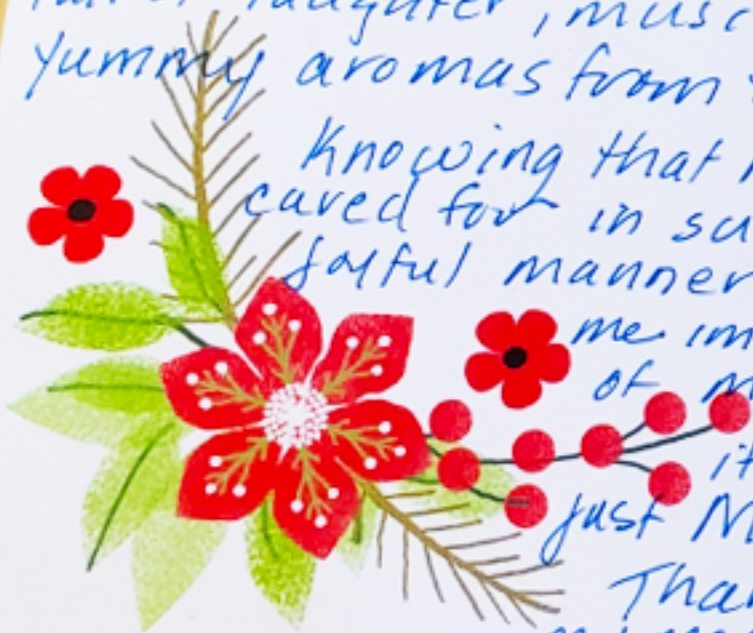 laughter, music
yummy aromas from
Knowing that
cared for in su
joyful manner
me im
of m
it
just M
Than